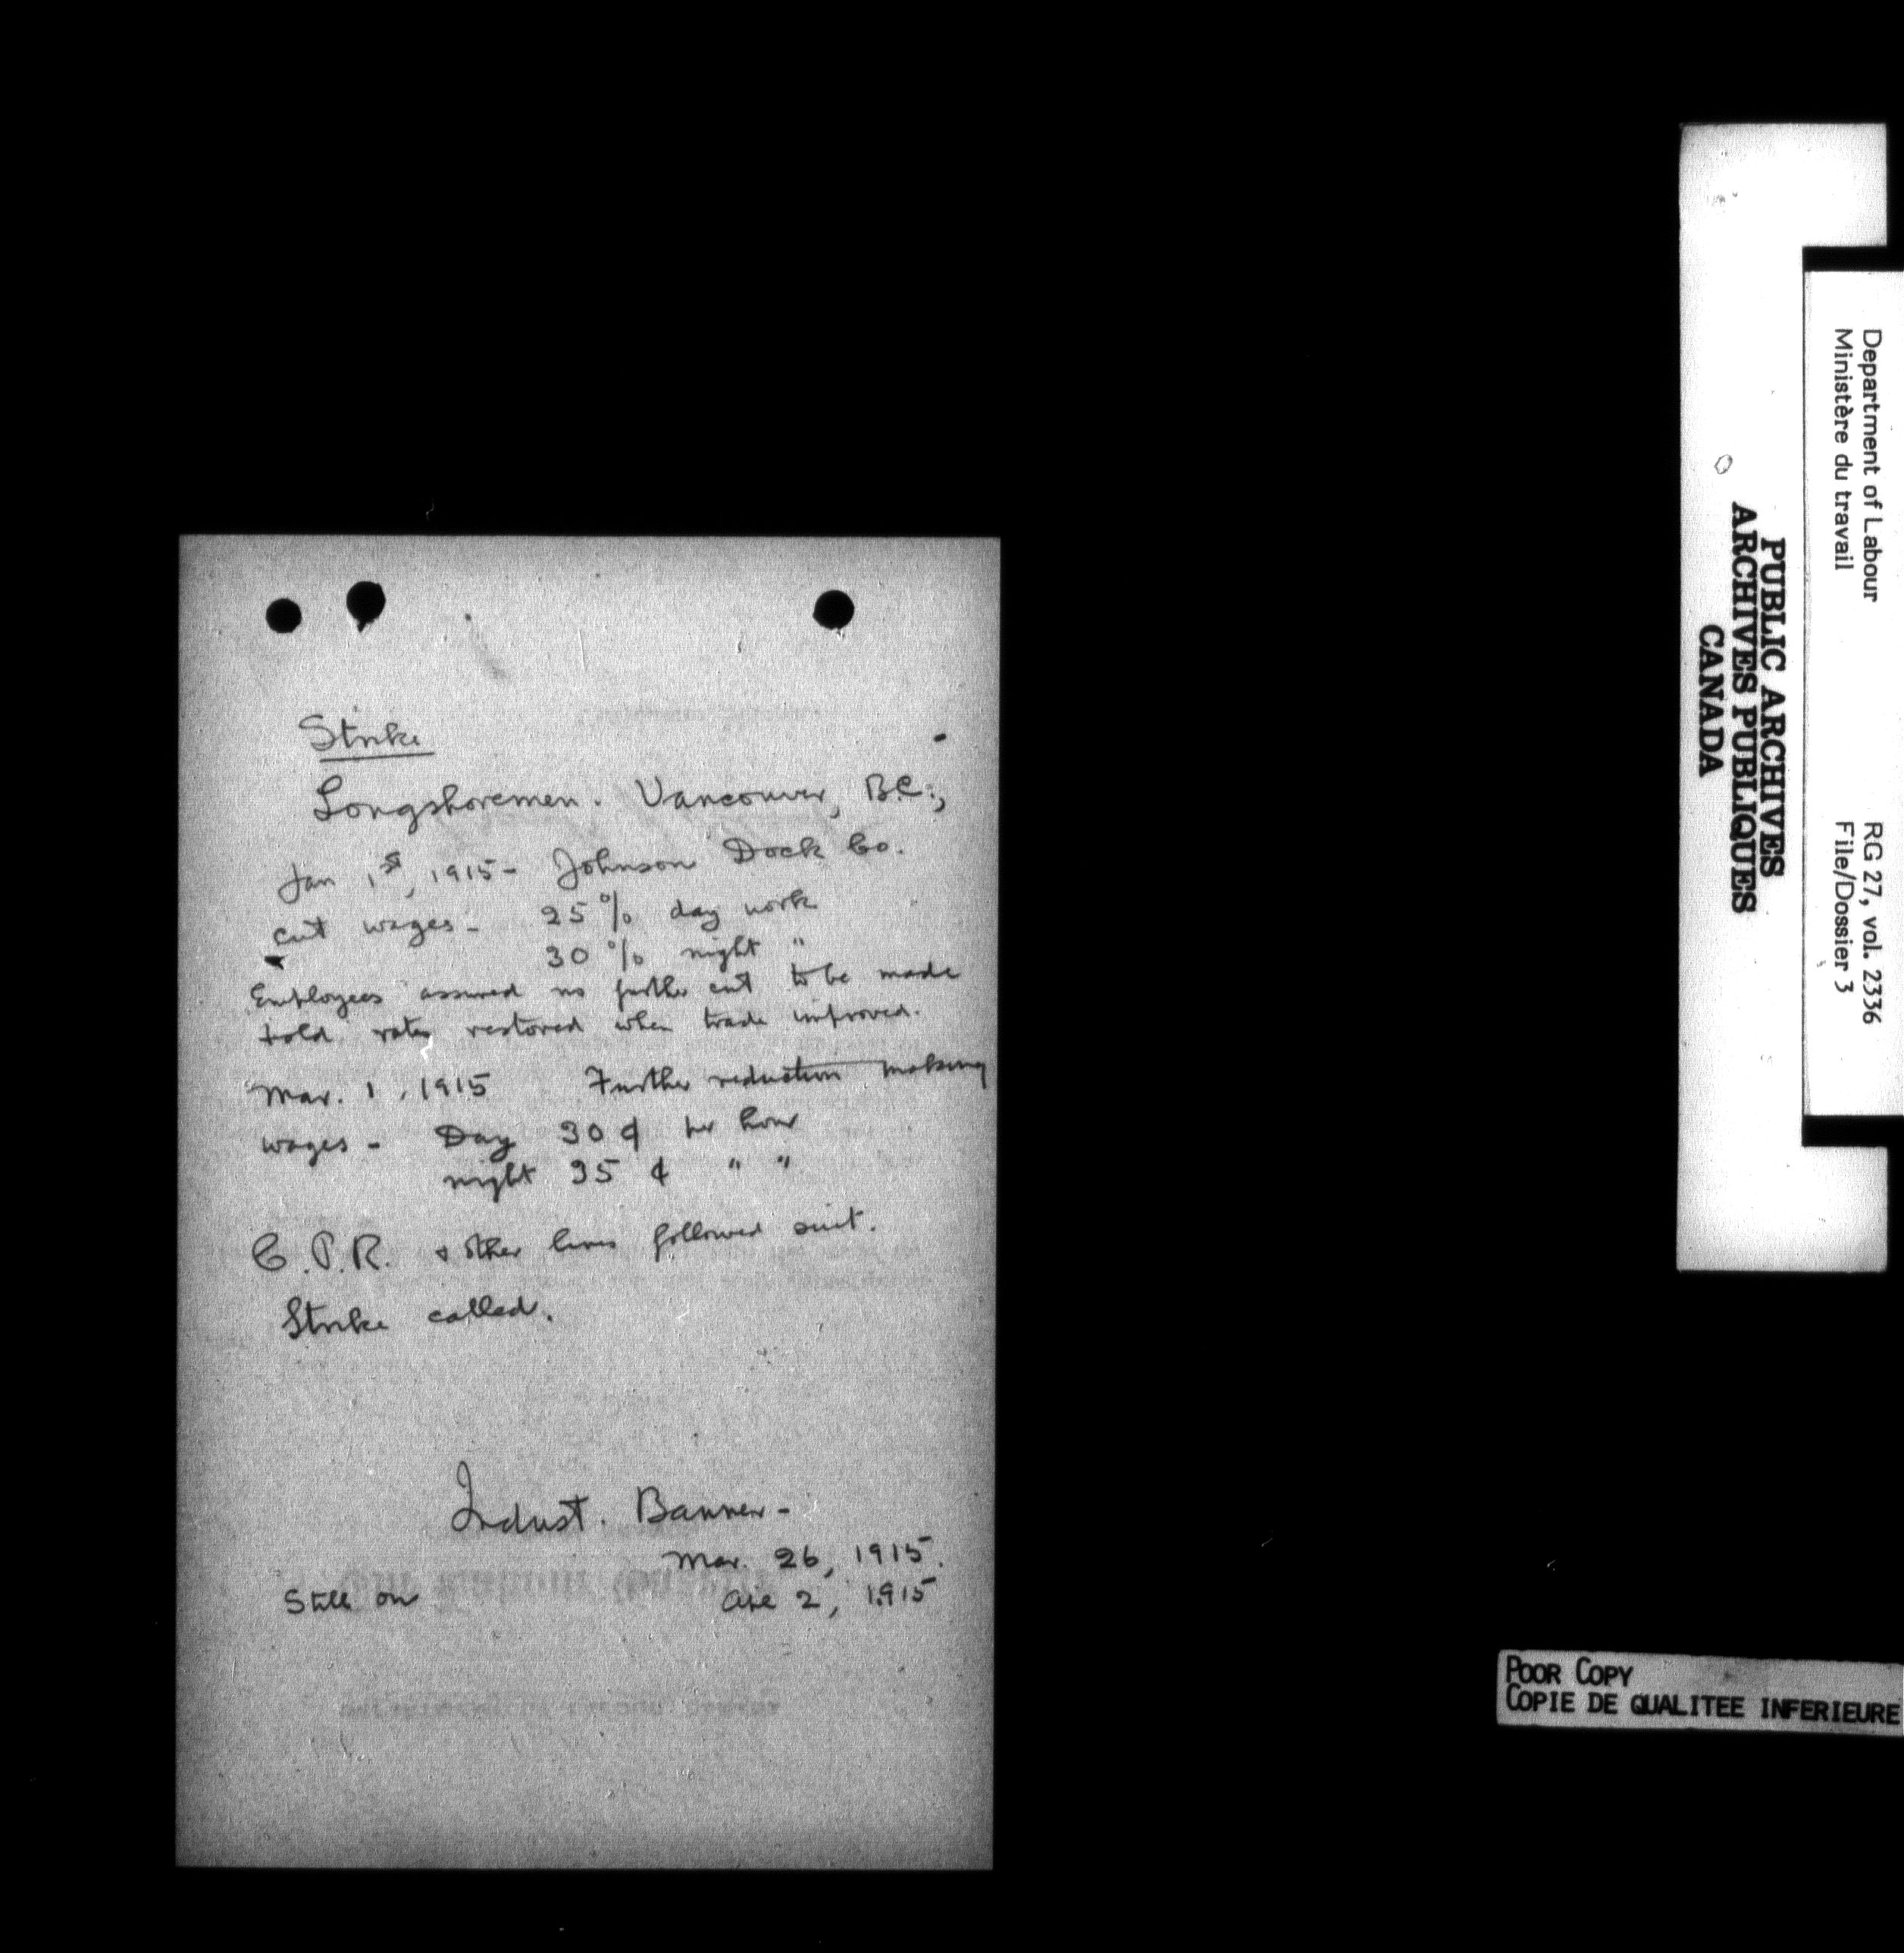 Strike
Longshoremen. Vancouver, B.C.,
Jan 1st, 1915 - Johnson Dock Co.
cut wages - 25% day work
30% night "
Employees assured no further cut to be made
& old rates restored when trade improved.
Mar. 1, 1915 Further reduction making
wages - Day 30¢ per hour
night 35¢ " "
C.P.R. & other lines followed suit.
Strike called.
Indust. Banner -
Mar. 26, 1915.
Still on 2, 1915
Department of Labour
Ministère du travail
RG 27, vol. 2336
File/Dossier 3
PUBLIC ARCHIVES
ARCHIVES PUBLIQUES
CANADA
POOR COPY
COPIE DE QUALITEE INFERIEURE